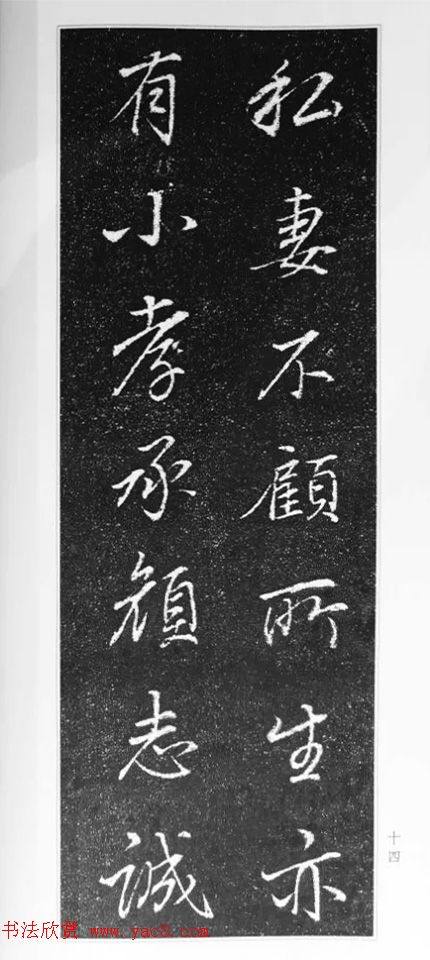 私妻不顧所生亦
有小孝承顔志誠
十四
书法欣赏 www.yac8.com